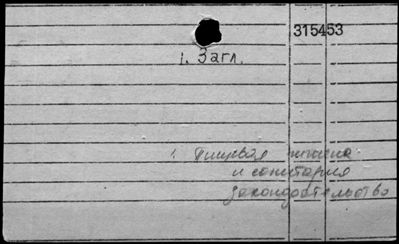 315453
1. Загл.
1. Пищевая гигиена
и санитария
законодательство